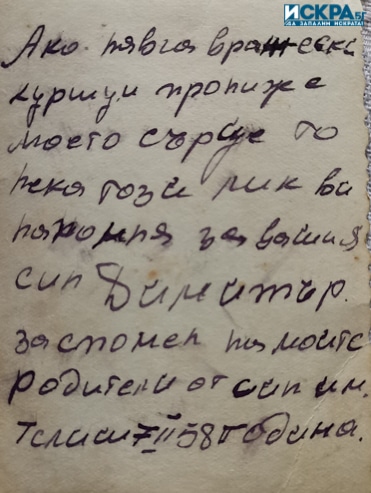 ИСКРА.БГ
ДА ЗАПАЛИМ ИСКРАТА!
Ако някга вражеска
куршум прониже
моето сърце то
нека този лик ви
напомня за вашия
син Димитър.
за спомен на моите
родители от син им.
7 II 58 година.